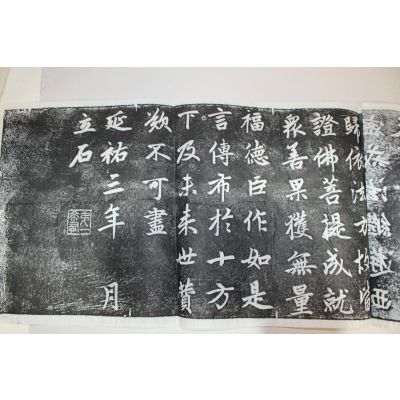 歸依法
證佛菩提成就
衆善果獲無量
福德臣作如是
言傳布於十方
下及未来世贊
歎不可盡
延祐三年　月
立石